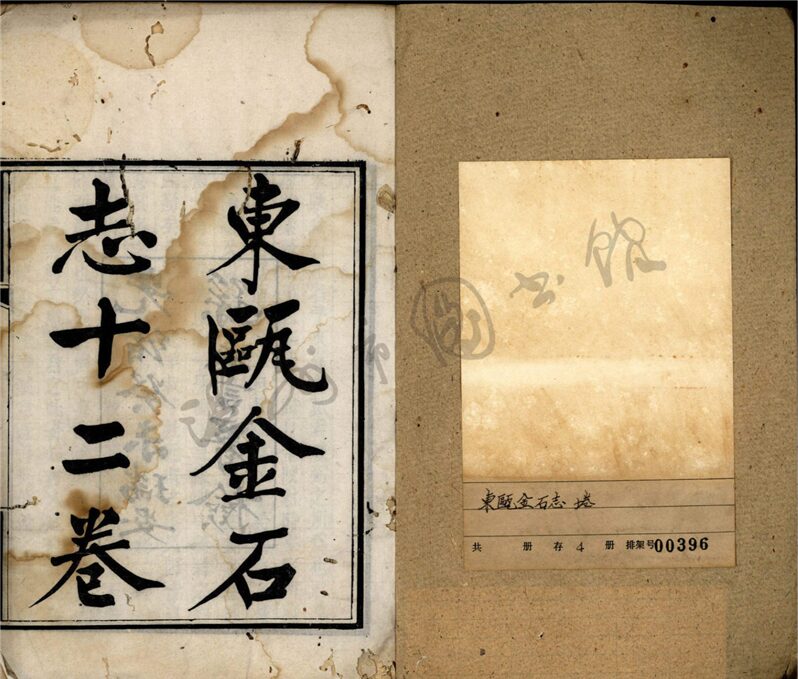 東甌金石
志十二卷
東甌金石志
共 册 存 4 册 排架号00396